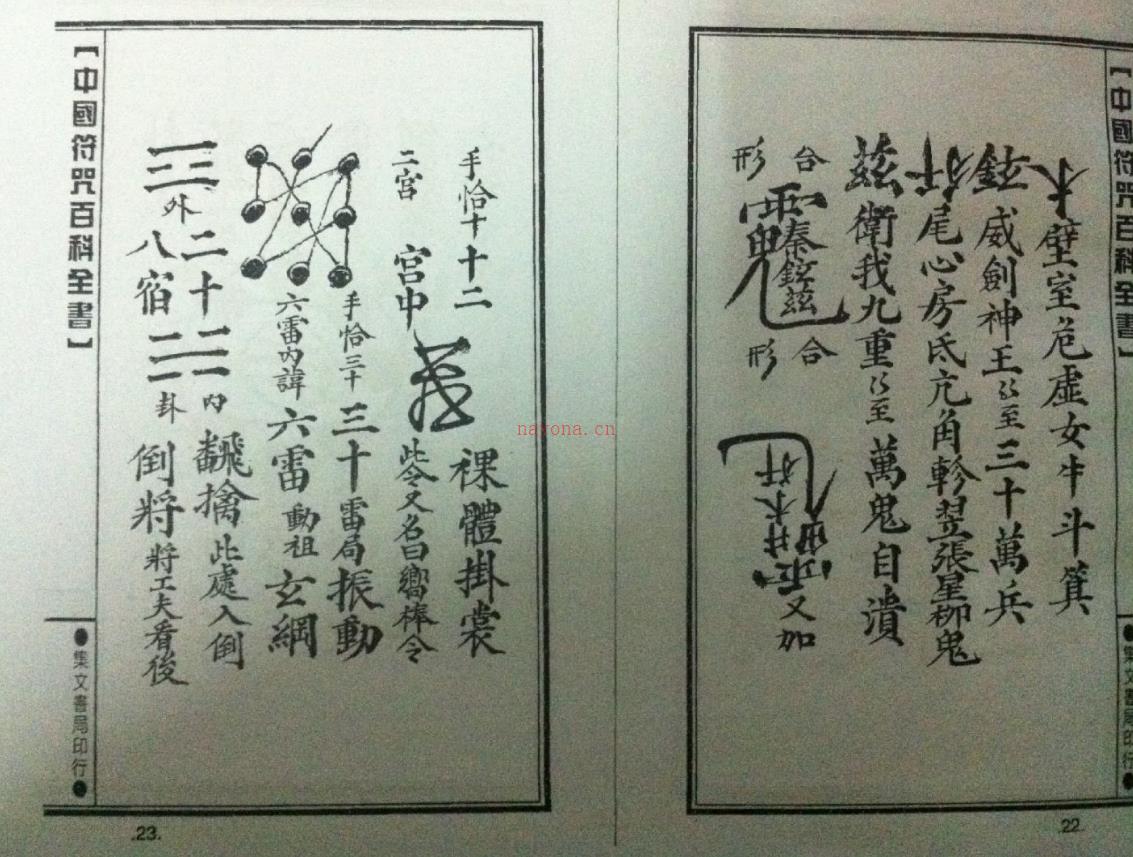 【中國符咒百科全書】
壁室危虛女牛斗箕
威劍神王云至三十萬兵
尾心房氐亢角軫翌張星柳鬼
衛我九重云至萬鬼自潰
合形
合形
又加
●集文書局印行●
22
手恰十十二裸體掛裳
二宮宮中此令又名曰嚮棒令
手恰三十三十雷局振動
六雷內諱六雷動祖玄綱
二十二內飜擒此處入倒
三三外八宿二二卦倒將將工夫看後
【中國符咒百科全書】
●集文書局印行●
.23.
nayona.cn